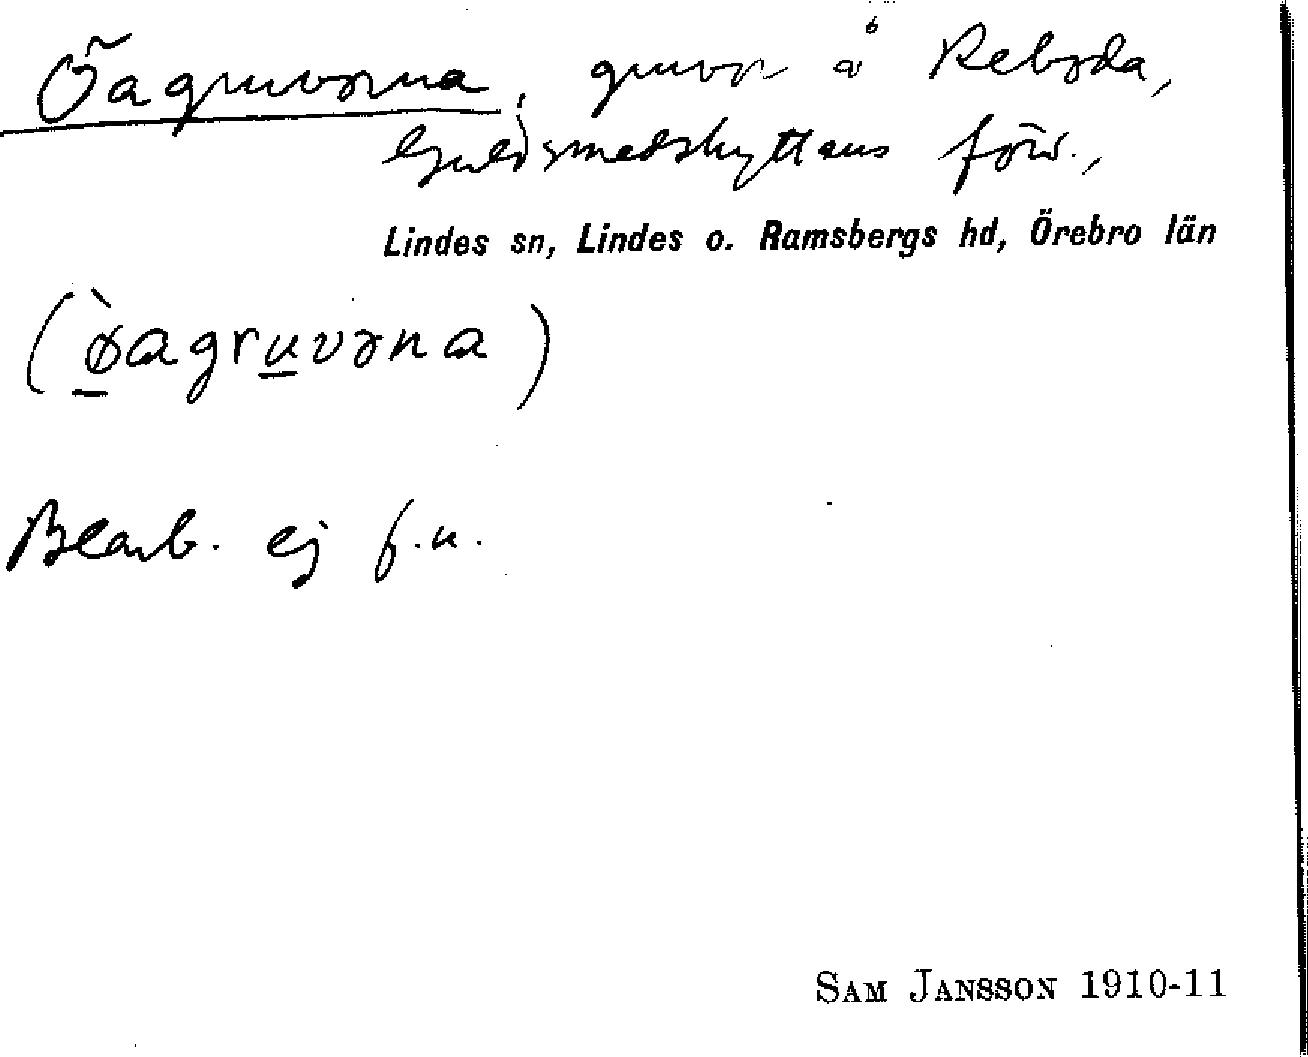 Öagruvorna, gruvor å Reboda,
Guldsmedshyttans förs.,
Lindes sn, Lindes o. Ramsbergs hd, Örebro län
(ø̀agruvəna)
Bearb. ej f.n.
SAM JANSSON 1910-11